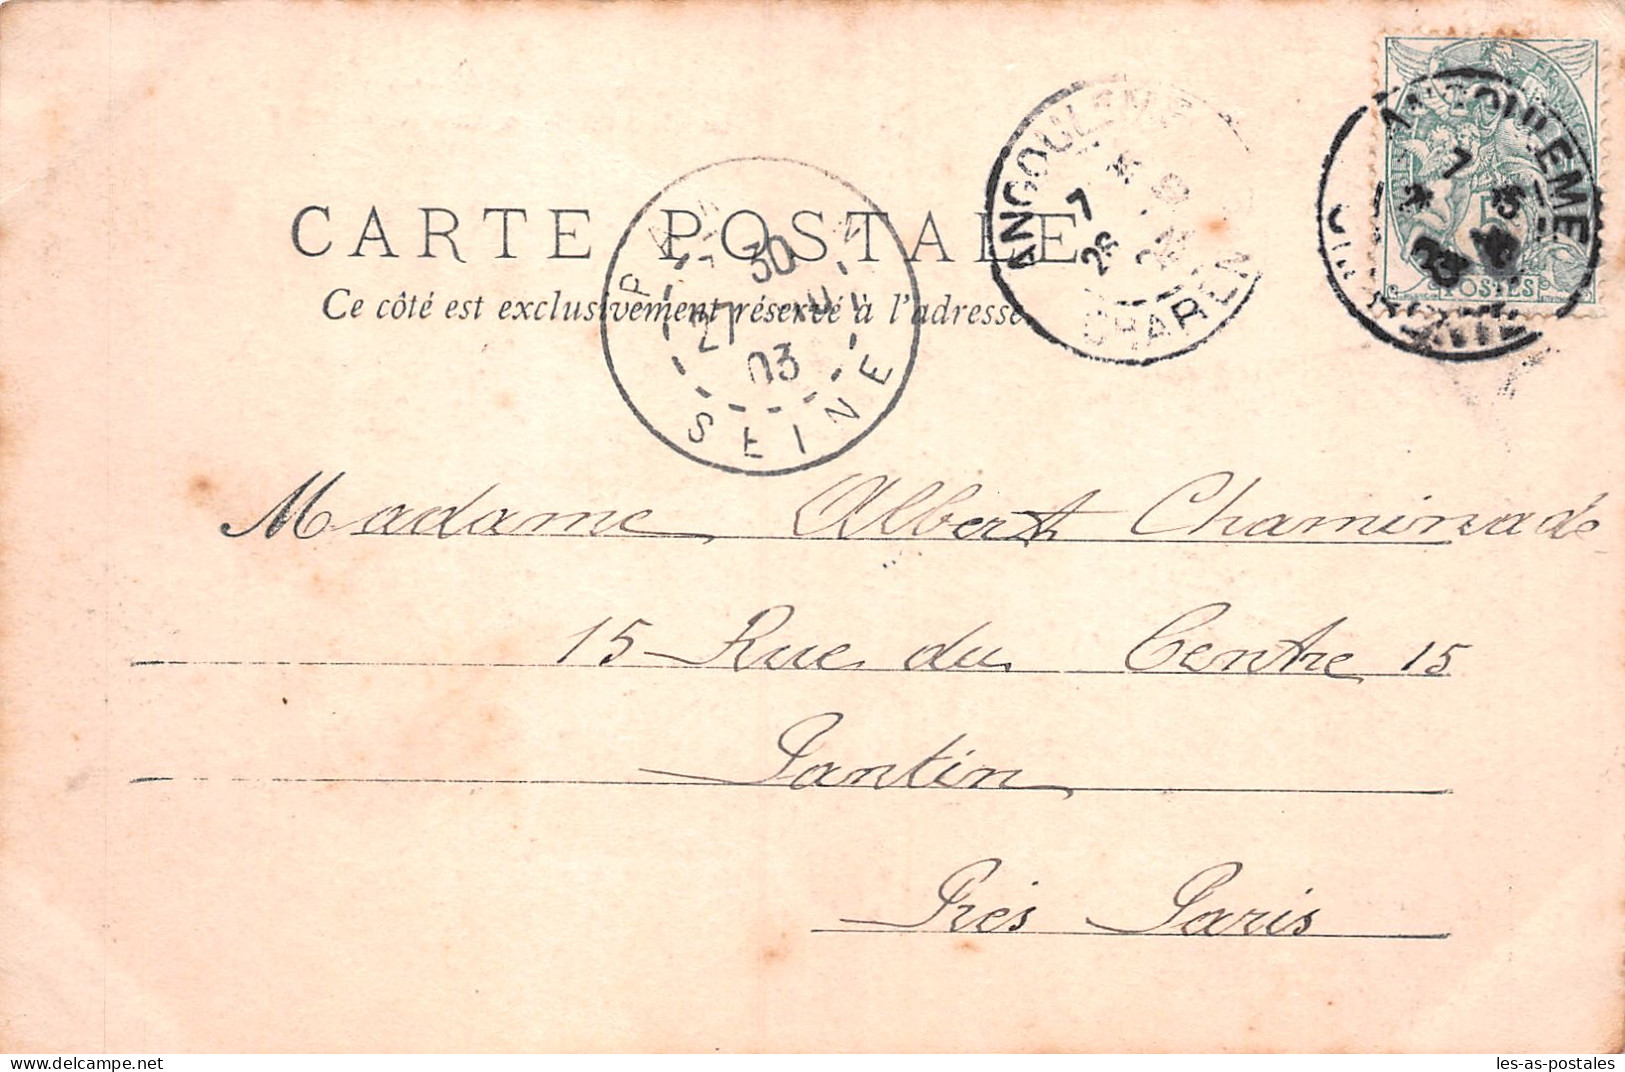 CARTE POSTALE
Ce côté est exclusivement réservé à l'adresse
ANGOULEME
7
26
CHAREN
ANGOULEME
7
POSTES
7 30
27
03
SEINE
Madame Albert Chaminade
15 Rue du Centre 15
Pantin
Près Paris
www.delcampe.net
les-as-postales